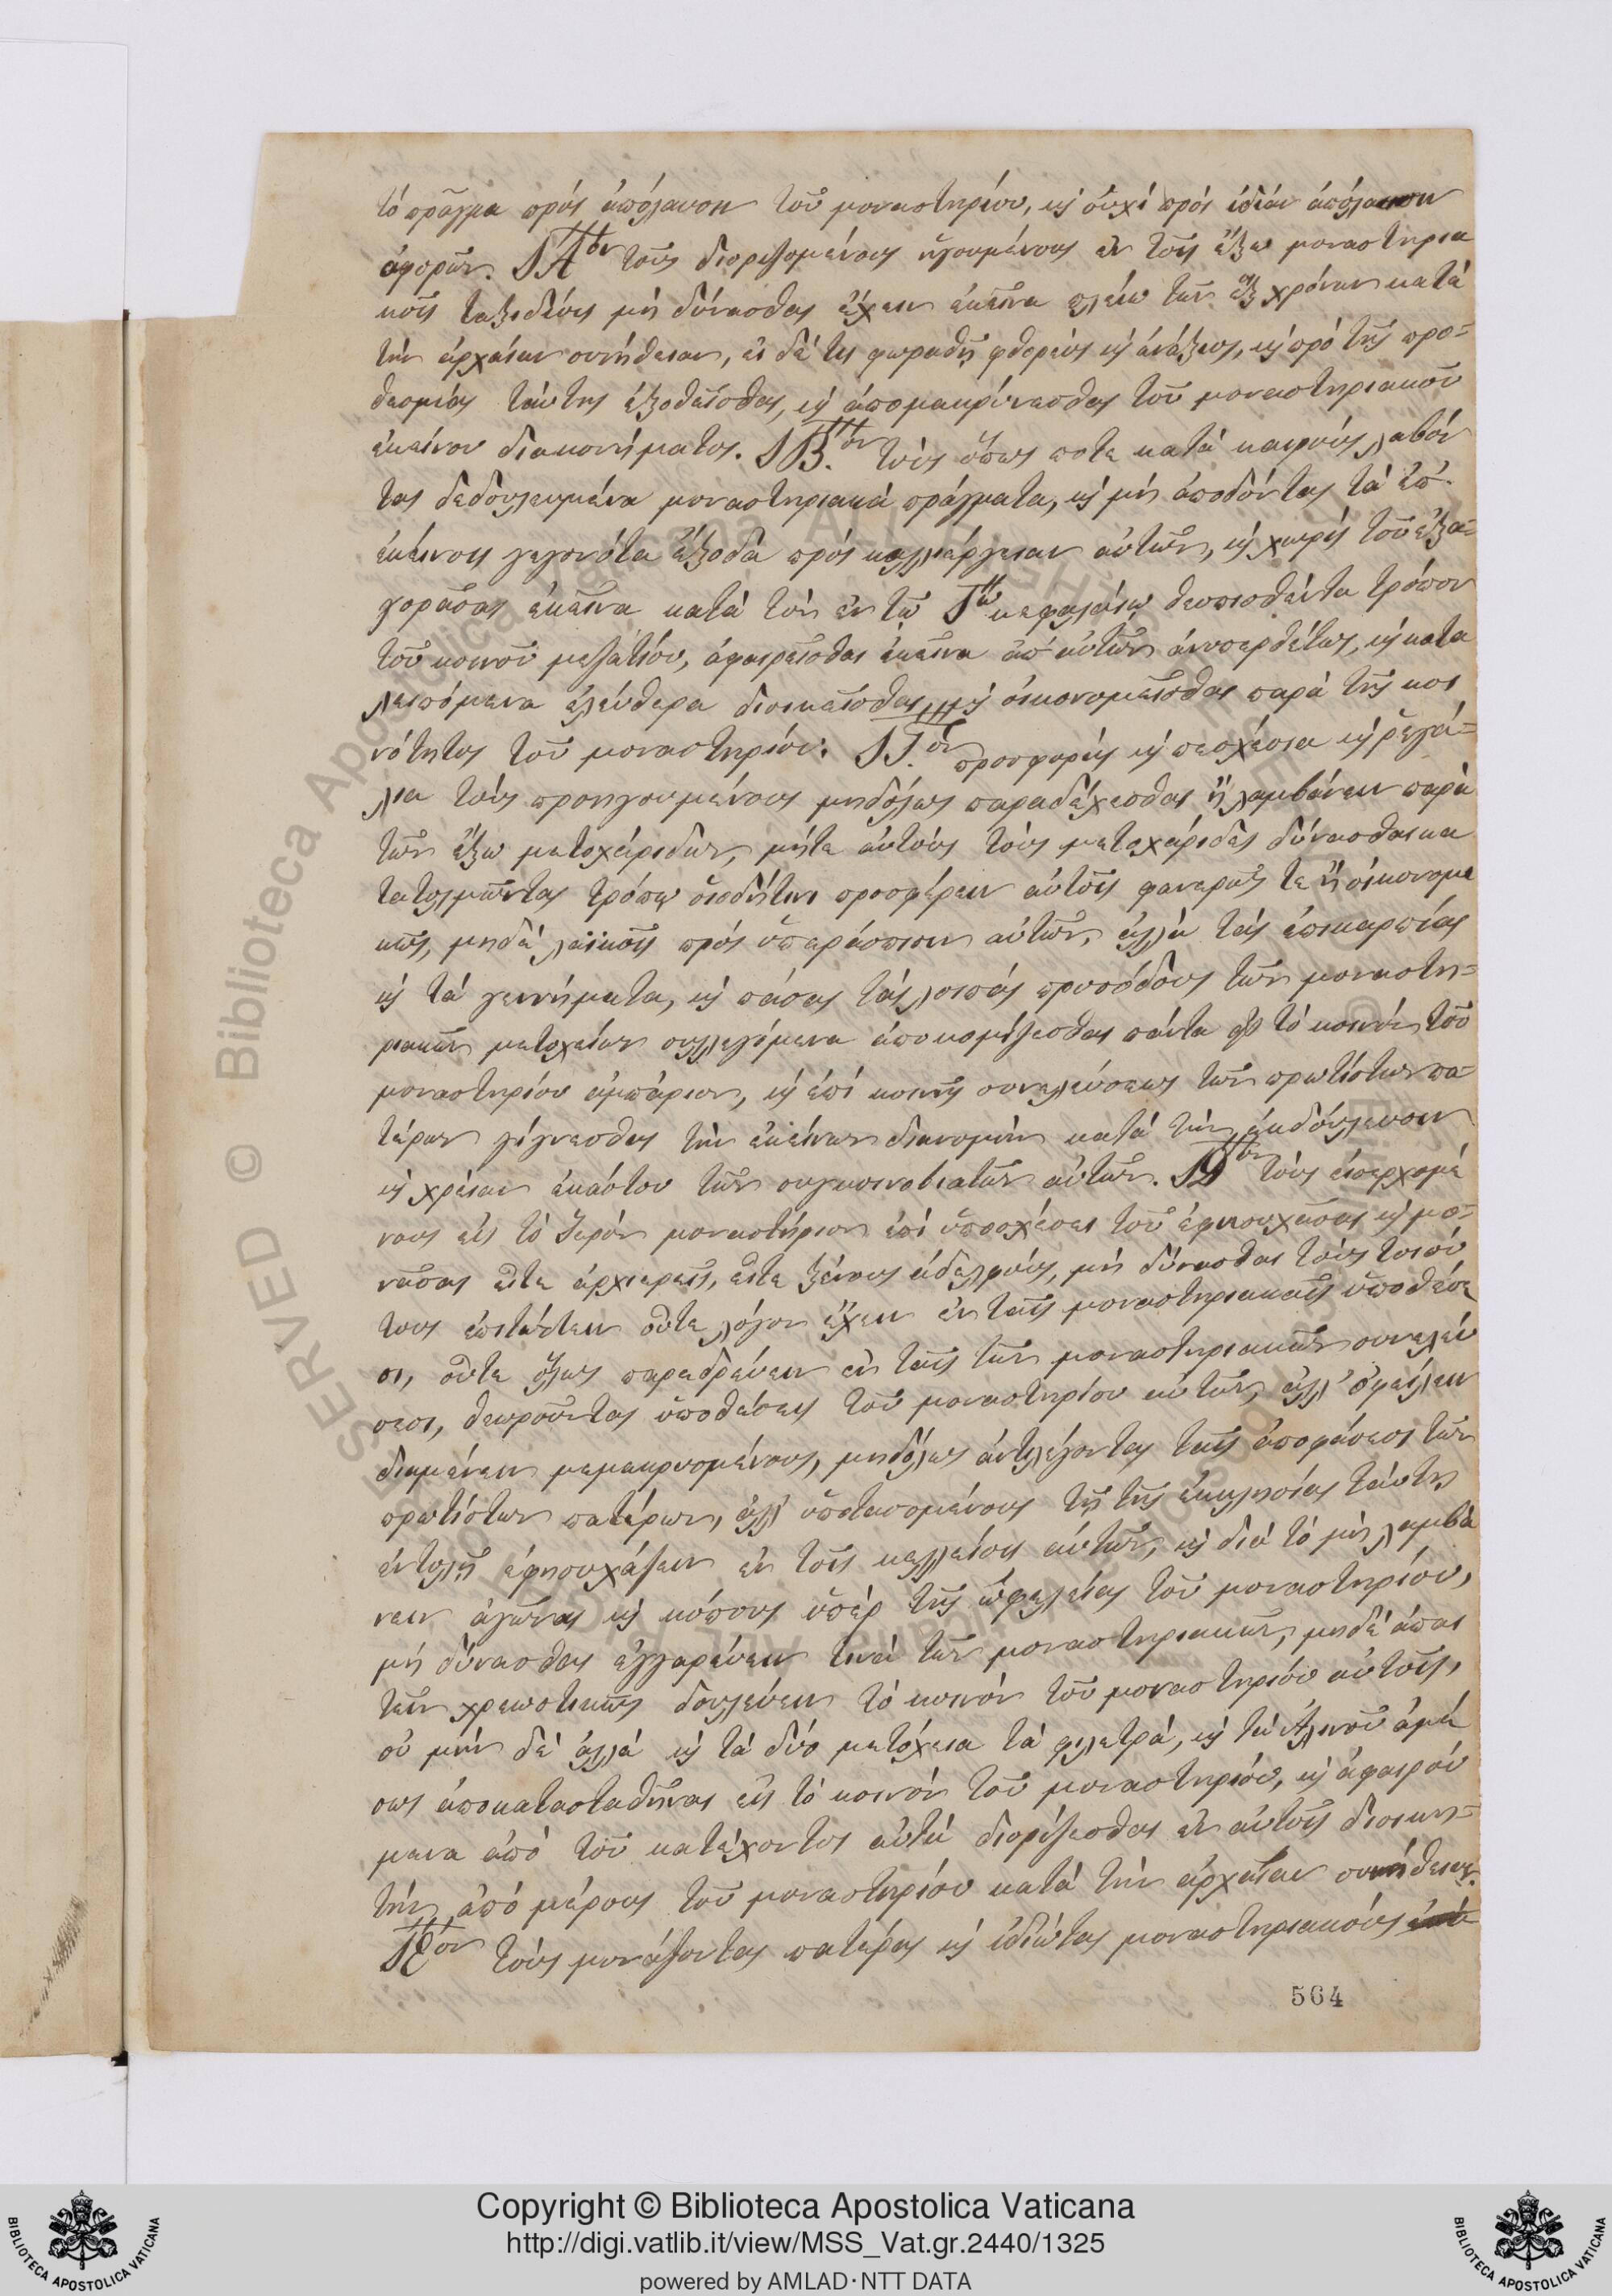 τὸ πρᾶγμα πρὸς ἀπόλαυσιν τοῦ μοναστηρίου, καὶ οὐχὶ πρὸς ἰδίαν ἀπόλαυσιν
ἀφορῶν. ΙΑον τοὺς διοριζομένους ἡγουμένους ἐν τοῖς ἔξω μοναστηρια
κοῖς ταξιδίοις μὴ δύνασθαι ἔχειν ἐκεῖνα πλείω τῶν ἓξ χρόνων κατὰ
τὴν ἀρχαίαν συνήθειαν, εἰ δέ τις φωραθῇ φθορεὺς καὶ ἀνάξιος, καὶ πρὸ τῆς προ=
θεσμίας ταύτης ἐξωθεῖσθαι, καὶ ἀπομακρύνεσθαι τοῦ μοναστηριακοῦ
ἐκείνου διακονήματος. ΙΒ.ον τοὺς ὅπως ποτε κατὰ καιροὺς λαβόν
τας δεδουλευμένα μοναστηριακὰ πράγματα, καὶ μὴ ἀποδόντας τὰ ἐπ'
ἐκείνοις γεγονότα ἔξοδα πρὸς καλλιέργειαν αὐτῶν, καὶ χωρὶς τοῦ ἐξα=
γορᾶσαι ἐκεῖνα κατὰ τὸν ἐν τῷ κεφαλαίῳ θεσπισθέντα τρόπον
τοῦ κοινοῦ μεζατίου, ἀφαιρεῖσθαι ἐκεῖνα ἀπ' αὐτῶν ἀνυπερθέτως, καὶ κατα
λειπόμενα ἐλεύθερα διοικεῖσθαι καὶ οἰκονομεῖσθαι παρὰ τῆς κοι
νότητος τοῦ μοναστηρίου. ΙΓ.ον προσφορὰς καὶ πεσχέσια καὶ ῥεγά=
λια τοὺς προηγουμένους μηδόλως παραδέχεσθαι ἢ λαμβάνειν παρὰ
τῶν ἔξω μετοχάριδων, μήτε αὐτοὺς τοὺς μετοχάριδες δύνασθαι κα
τατολμῶντας τρόπῳ οἱῳδήτινι προσφέρειν αὐτοῖς φανερῶς τε ἢ οἰκονομι
κῶς, μηδὲ λαϊκοῖς πρὸς ὑπεράσπισιν αὐτῶν, ἀλλὰ τὰς ἐπικαρπίας
καὶ τὰ γεννήματα, καὶ πάσας τὰς λοιπὰς προσόδους τῶν μοναστη=
ριακῶν μετοχείων συλλεγόμενα ἀποκομίζεσθαι πάντα εἰς τὸ κοινὸν τοῦ
μοναστηρίου ἀμπάριον, καὶ ἐπὶ κοινῆς συνελεύσεως τῶν πρωτίστων πα=
τέρων γίγνεσθαι τὴν ἐκείνων διανομὴν κατὰ τὴν ἐκδούλευσιν
καὶ χρείαν ἑκάστου τῶν συγκοινοβιατῶν αὐτῶν. ΙΔον τοὺς εἰσερχομέ
νους εἰς τὸ ἱερὸν μοναστήριον ἐπὶ ὑποσχέσει τοῦ ἐφησυχᾶσαι καὶ μο=
νᾶσαι εἴτε ἀρχιερεῖς, εἴτε ξένους ἀδελφοὺς, μὴ δύνασθαι τοὺς τοιού
τους ἐπιτάττειν οὔτε λόγον ἔχειν ἐν ταῖς μοναστηριακαῖς ὑποθέσε
σι, οὔτε ὅλως παρεδρεύειν ἐν ταῖς τῶν μοναστηριακῶν συνελεύ
σεσι, θεωροῦντας ὑποθέσεις τοῦ μοναστηρίου αὐτῶν, ἀλλ' ὀφείλειν
διαμένειν μεμακρυσμένους, μηδόλως ἀντιλέγοντας ταῖς ἀποφάσεσι τῶν
πρωτίστων πατέρων, ἀλλ' ὑποτασσομένους τῇ τῆς ἐκκλησίας ταύτῃ
ἐντολῇ ἐφησυχάζειν ἐν τοῖς κελλείοις αὐτῶν, καὶ διὰ τὸ μὴ λαμβά
νειν ἀγῶνας καὶ κόπους ὑπὲρ τῆς ὠφελείας τοῦ μοναστηρίου,
μὴ δύνασθαι ἀγγαρεύειν τινὰ τῶν μοναστηριακῶν, μηδὲ ἀπαι
τεῖν χρεωστικῶς δουλεύειν τὸ κοινὸν τοῦ μοναστηρίου αὐτοῖς,
οὐ μὴν δὲ ἀλλὰ καὶ τὰ δύο μετόχεια τὰ φιλετρὰ, καὶ τὰ Ἀλινοῦ ἀμέ
σως ἀποκατασταθῆναι εἰς τὸ κοινὸν τοῦ μοναστηρίου, καὶ ἀφαιρού
μενα ἀπὸ τοῦ κατέχοντος αὐτὰ διορίζεσθαι ἐν αὐτοῖς διοικη=
τὴν ἀπὸ μέρους τοῦ μοναστηρίου κατὰ τὴν ἀρχαίαν συνήθειαν.
ΙΕον τοὺς μονάζοντας πατέρας καὶ ἰδιώτας μοναστηριακοὺς
564
© Biblioteca Apostolica Vaticana
Copyright © Biblioteca Apostolica Vaticana
http://digi.vatlib.it/view/MSS_Vat.gr.2440/1325
powered by AMLAD·NTT DATA
BIBLIOTECA APOSTOLICA VATICANA
BIBLIOTECA APOSTOLICA VATICANA